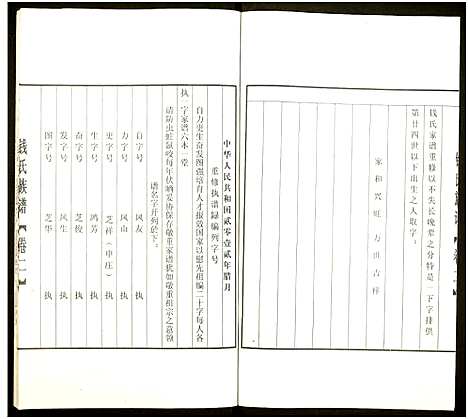 钱氏家谱重修以不失长晚辈之分特是一下字排供
第廿四世以下出生之人取字。
家和兴旺 万世吉祥
中华人民共和国贰零壹贰年腊月
重修执谱录编列字号
自力更生奋发图强培育人才报效国家以慰先祖编二十字每人各
执一字家谱六本一堂
请防虫蛀鼠咬每年伏晒妥协保存敬重家谱犹如敬重祖宗之意领
谱名字开列於下。
自字号 风友 执
力字号 风山 执
更字号 芝祥（申庄） 执
生字号 鸿芳 执
奋字号 芝俊 执
发字号 风生 执
图字号 芝华 执
钱氏族谱【卷二】